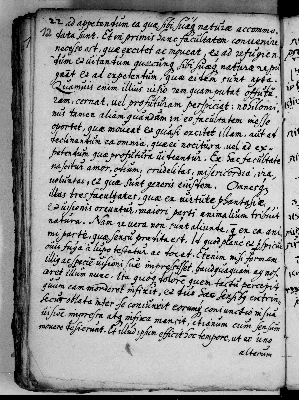 22 ad appetendum ea quæ sibi suæq naturæ accommo-
12 data sunt. Et in primis hanc facultatem convenire
necesse est, quæ excitet ac moveat, et ad refugien-
dum et vitandum quæcunq sibi suæq naturæ repu
gnat et ad expetendum, quæ eidem sunt apta.
Quamvis enim illius visio rem quampiam offutu
ram, cernat, vel profuturam perspiciat: nihilomi-
nus tamen aliam quandam in eo facultatem inesse
oportet, quæ moveat et quasi excitet illam, aut ad
declinandum ea omnia, quæ ei nocitura, vel ad ex-
petendum quæ profutura videantur. Ex hac facultate
nascitur amor, odium, crudelitas, misericordia, ira,
voluntas, et quæ sunt generis eiusdem. Omnesq
illas tres facultates, quæ ex virtute phantasiæ,
et visionis oriuntur, maiori parti animalium tribuit
natura. Nam re vera non sunt aliunde, quàm ea ani
mi parte, quæ sensu prædita est. Id quod plane ex
fuga à lupo testatur ac docet. Etenim nisi formam
illic ac speciem visioni suæ impressisset, haudquaquam ag nos-
ceret illum nunc. Itaque dolorem quem tactu percepit
quum eum morderet infixit, et duo hæc sensilia
secum collata inter se coniunxit eorumq coniunctio in sua
visione impressa atq infixa mansit, etiamsi eum sensum
movere desierunt. Et illud ipsum efficit hoc tempore, ut ac uno
alterum